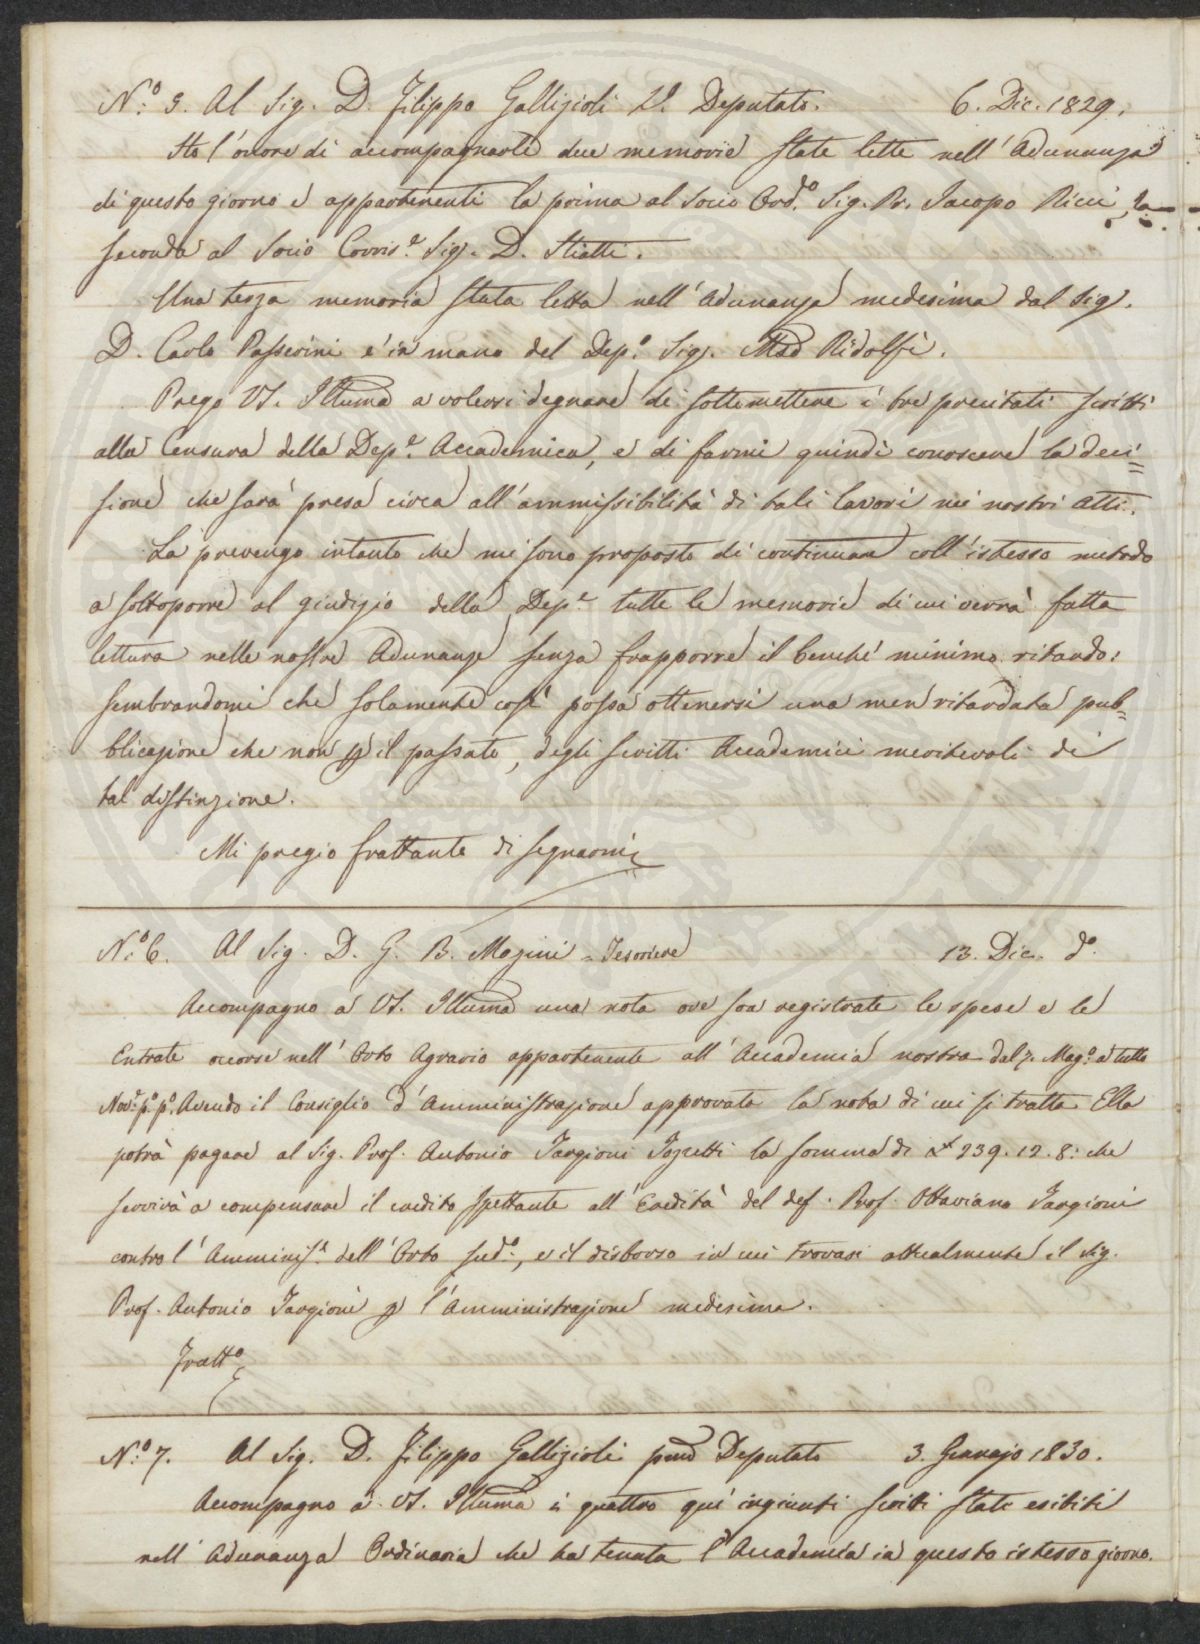 N.º 5. Al Sig. D. Filippo Gallizioli 1.º Deputato. 6. Dic. 1829.
Ho l'onore di accompagnarle due memorie state lette nell'Adunanza
di questo giorno e appartenenti la prima al Socio Ord.º Sig. Pr. Jacopo Ricci, la
seconda al Socio Corris.e Sig. D. Stiatti.
Una terza memoria stata letta nell'Adunanza medesima dal Sig.
D. Carlo Passerini è in mano del Dep.º Sig. Ridolfi.
Prego VS. Illuma a volersi degnare di sottomettere i tre precitati scritti
alla Censura della Dep.e Accademica, e di farmi quindi conoscere la deci=
sione che sarà presa circa all'ammissibilità di tali lavori nei nostri Atti.
La prevengo intanto che mi sono proposto di continuare coll'istesso metodo
a sottoporre al giudizio della Dep.e tutte le memorie di cui verrà fatta
lettura nelle nostre Adunanze senza frapporre il benché minimo ritardo:
sembrandomi che solamente così possa ottenersi una men ritardata pub=
blicazione che non p il passato, degli scritti Accademici meritevoli di
tal distinzione.
Mi pregio frattanto di segnarmi
N.º 6. Al Sig. D. G. B. Mazini = Tesoriere 13. Dic. dº.
Accompagno a VS. Illuma una nota ove son registrate le spese e le
Entrate occorse nell'Orto Agrario appartenente all'Accademia nostra dal 7. Mag.º a tutto
Nov.e p.º p.º. Avendo il Consiglio d'Amministrazione approvato la nota di cui si tratta Ella
potrà pagare al Sig. Prof. Antonio Targioni Tozzetti la somma di £ 239. 12. 8: che
servirà a compensare il credito spettante all'Eredità del def. Prof. Ottaviano Targioni
contro l'Amminis.e dell'Orto sud.º, e il disborso in cui trovasi attualmente il Sig.
Prof. Antonio Targioni p l'Amministrazione medesima.
Fratt.º
N.º 7. Al Sig. D. Filippo Gallizioli pmo Deputato 3. Gennajo 1830.
Accompagno a VS. Illuma i quattro quì ingiunti scritti stati esibiti
nell'Adunanza Ordinaria che ha tenuta l'Accademia in questo istesso giorno.